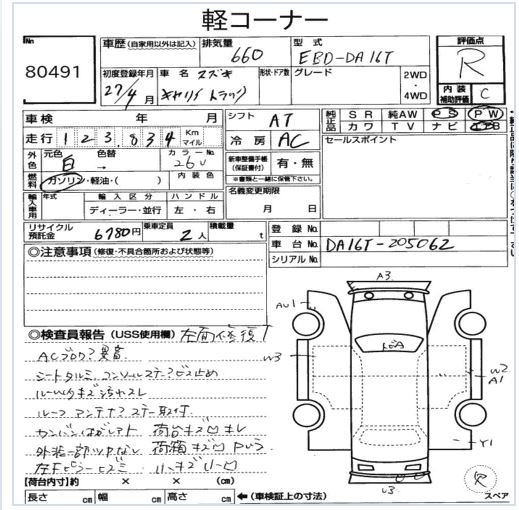 軽コーナー
No
80491
車歴 (自家用以外は記入) 排気量 660 型式 EBD-DA16T
評価点 R
初度登録年月 27/4月 車名 スズキ キャリイトラック 形状・ドア数 グレード 2WD・4WD
内装補助評価 C
車検 年 月 シフト AT
純正品 SR 純AW PS PW
カワ TV ナビ エアB
走行 123,834 Km マイル 冷房 AC
セールスポイント
外色 元色 白 色替 → カラーNo. 26U
新車整備手帳 (保証書付) 有・無
※書類と一緒に保管下さい。
燃料 ガソリン・軽油・( ) 内装色
名義変更期限 月 日
輸入車用 年式 輸入区分 ディーラー・並行 ハンドル 左・右
リサイクル預託金 6780円 乗車定員 2人 積載量 t
登録No.
車台No. DA16T-205062
シリアルNo.
◎注意事項 (修復・不具合箇所および状態等)
A3
AU1
W3
W2
A1
Y1
U3
◎検査員報告 (USS使用欄)
ACブロワ?異音
シートタルミ
ルーフ アンテナ?ステー取付
荷台キズ凹キレ
[荷台内寸] 約 × × (cm)
長さ cm 幅 cm 高さ cm ←(車検証上の寸法)
スペア